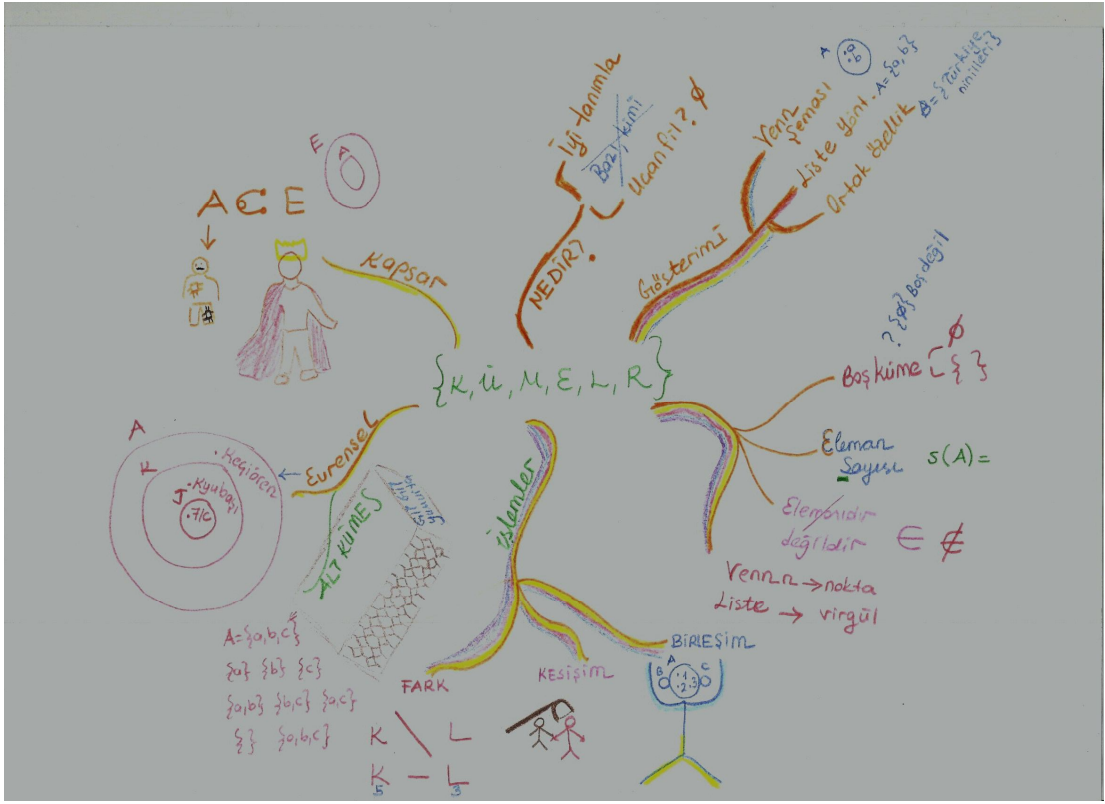 {K, Ü, M, E, L, R}
NEDİR?
İyi tanımla
Bazı, kimi
Uçan fil? ∅
Gösterimi
Venn
Şeması
A
.a
.b
Liste yönt. A={a,b}
Ortak özellik
B={Türkiye
nin illeri}
Boş küme
∅
{ }
? {∅} Boş değil
Eleman
Sayısı
s(A)=
Elemanıdır
değildir
∈ ∉
Vennn → nokta
Liste → virgül
işlemler
BİRLEŞİM
B A C
.1
.2 .3
KESİŞİM
FARK
K \ L
K − L
5 3
Evrensel
A
K
.Keçiören
.Kyubaşı
J
.7/C
ALT KÜMES
A={a,b,c}
{a} {b} {c}
{a,b} {b,c} {a,c}
{ } {a,b,c}
Kapsar
A ⊂ E
E
A